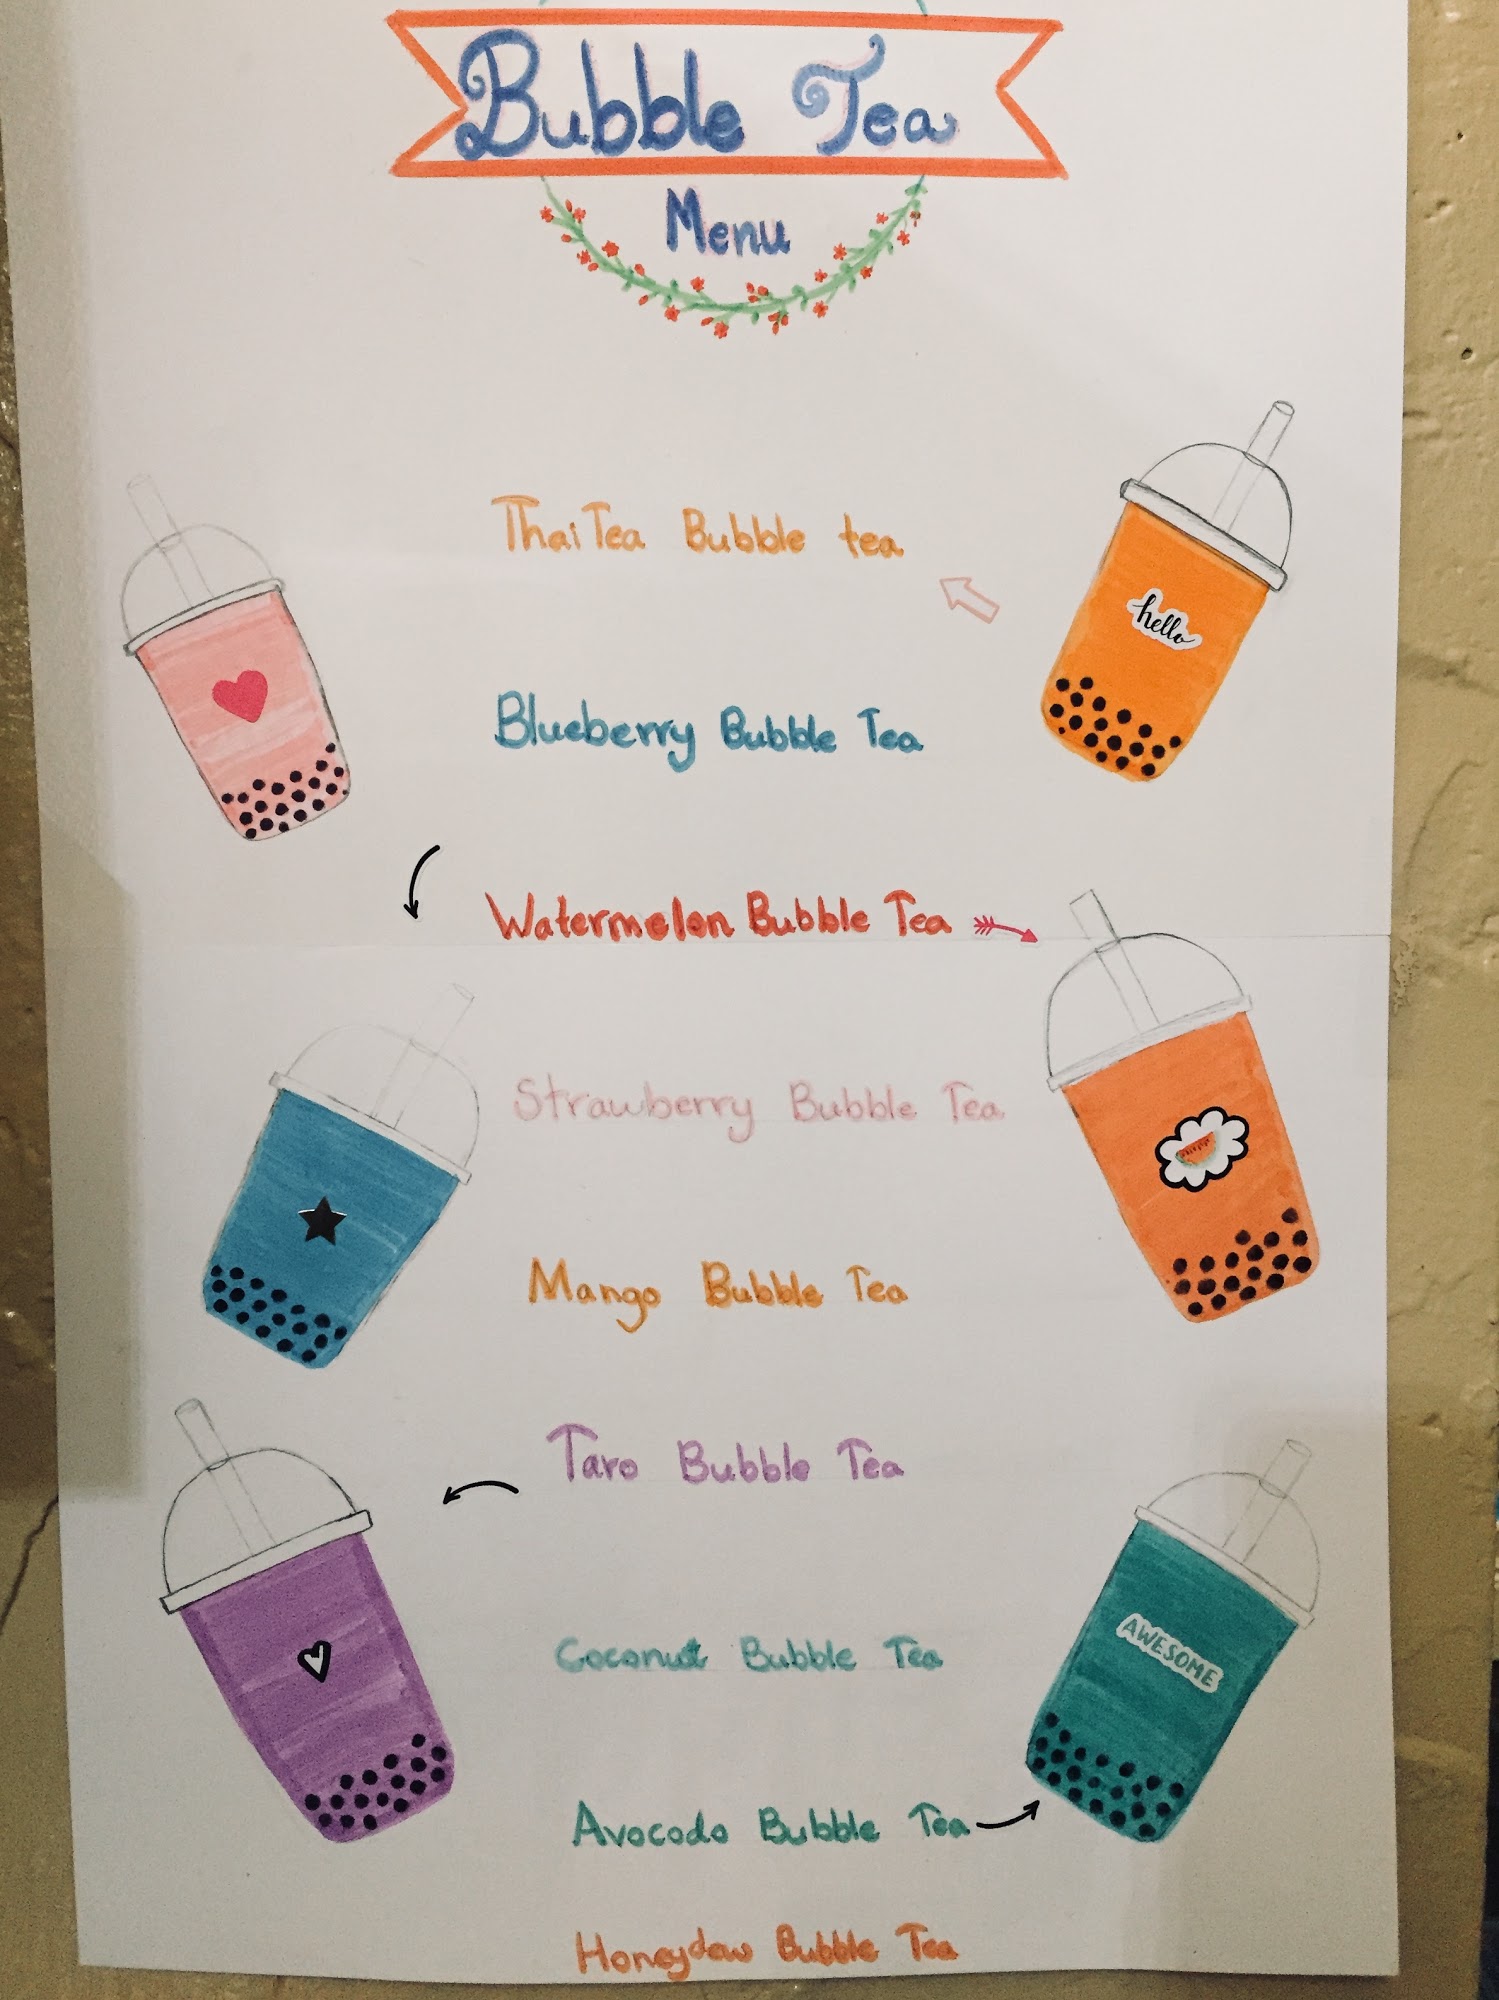 Bubble Tea
Menu
Thai Tea Bubble tea
hello
Blueberry Bubble Tea
Watermelon Bubble Tea
Strawberry Bubble Tea
Mango Bubble Tea
Taro Bubble Tea
Coconut Bubble Tea
AWESOME
Avocodo Bubble Tea
Honeydew Bubble Tea